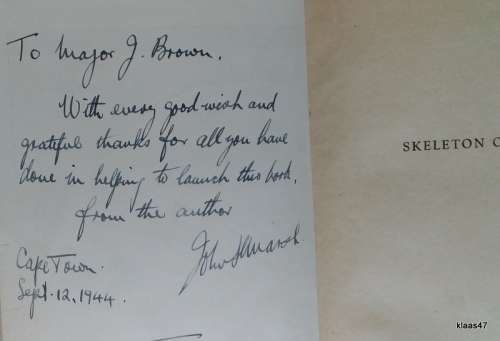 To Major J. Brown.
With every good wish and
grateful thanks for all you have
done in helping to launch this book,
from the author
John H Marsh
Cape Town.
Sept. 12, 1944.
SKELETON C
klaas47